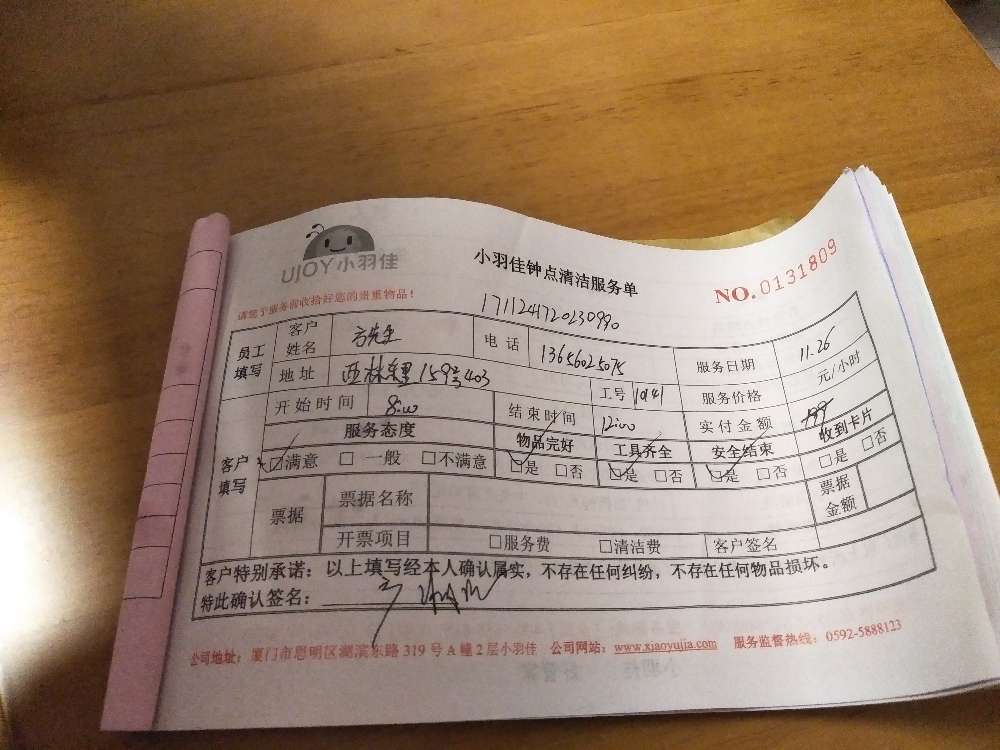 UJOY小羽佳
小羽佳钟点清洁服务单
NO.0131809
请您于服务前收拾好您的贵重物品！
1711241720230990
员工填写 客户姓名 方先生 电话 13656025075 服务日期 11.26
地址 西林东里159号403 工号 1041 服务价格 元/小时
客户填写 开始时间 8:00 结束时间 12:00 实付金额
服务态度 物品完好 工具齐全 安全结束 收到卡片
☑满意 □一般 □不满意 ☑是 □否 ☑是 □否 ☑是 □否 □是 □否
票据 票据名称 票据金额
开票项目 □服务费 □清洁费 客户签名
客户特别承诺：以上填写经本人确认属实，不存在任何纠纷，不存在任何物品损坏。
特此确认签名：
公司地址：厦门市思明区湖滨东路319号A幢2层小羽佳 公司网站：www.xiaoyujia.com 服务监督热线：0592-5888123